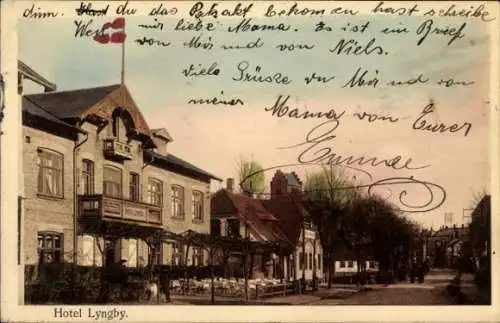 dinn. Hast du das Packakt bekommen hast schreibe
mir liebe Mama. Es ist ein Brief
von Mir und von Niels,
viele Grüße von Mir und von
meiner
Mama von Eurer
Emmae
Hotel Lyngby.